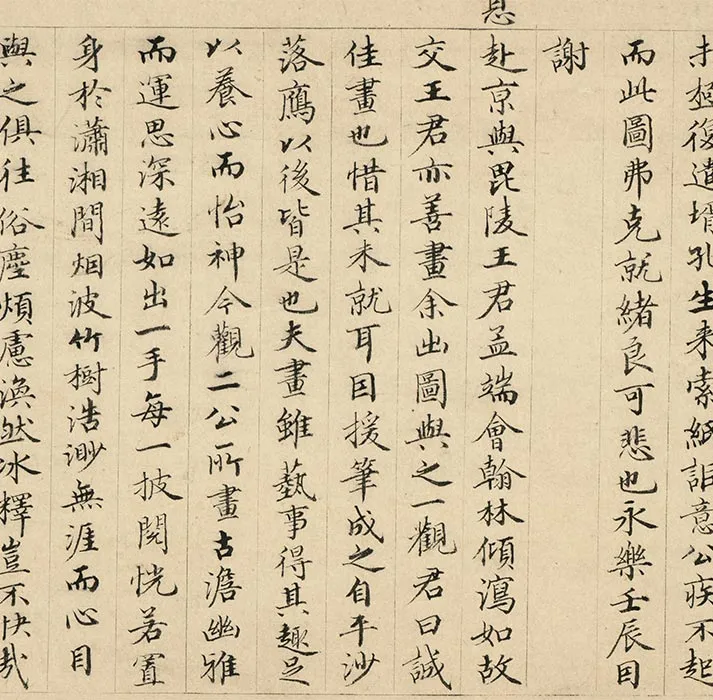 未極復遣壻孔生来索紙詎意公疾不起
而此圖弗克就緒良可悲也永樂壬辰因
謝
恩赴京與毘陵王君孟端會翰林傾瀉如故
交王君亦善畫余出圖與之一觀君曰誠
佳畫也惜其未就耳因援筆成之自平沙
落鴈以後皆是也夫畫雖藝事得其趣足
以養心而怡神今觀二公所畫古澹幽雅
而運思深遠如出一手每一披閱恍若置
身於瀟湘間烟波竹樹浩渺無涯而心目
與之俱往俗塵煩慮渙然冰釋豈不快哉